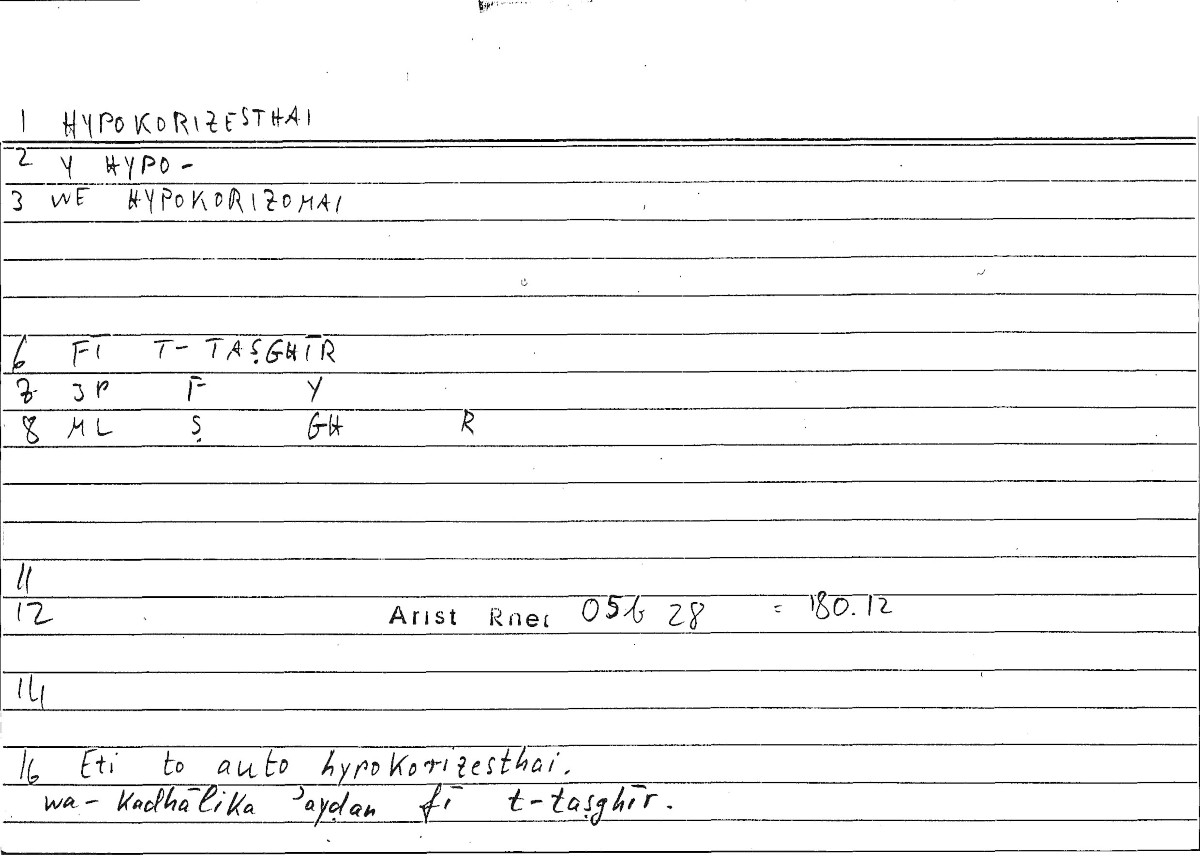 1 HYPOKORIZESTHAI
2 Y HYPO-
3 WE HYPOKORIZOMAI
6 FĪ T-TAṢGHĪR
7 3P F Y
8 ML Ṣ GH R
11
12 Arist Rhet 05b 28 = 180.12
14
16 Eti to auto hypokorizesthai.
wa-kadhālika ʾayḍan fī t-taṣghīr.